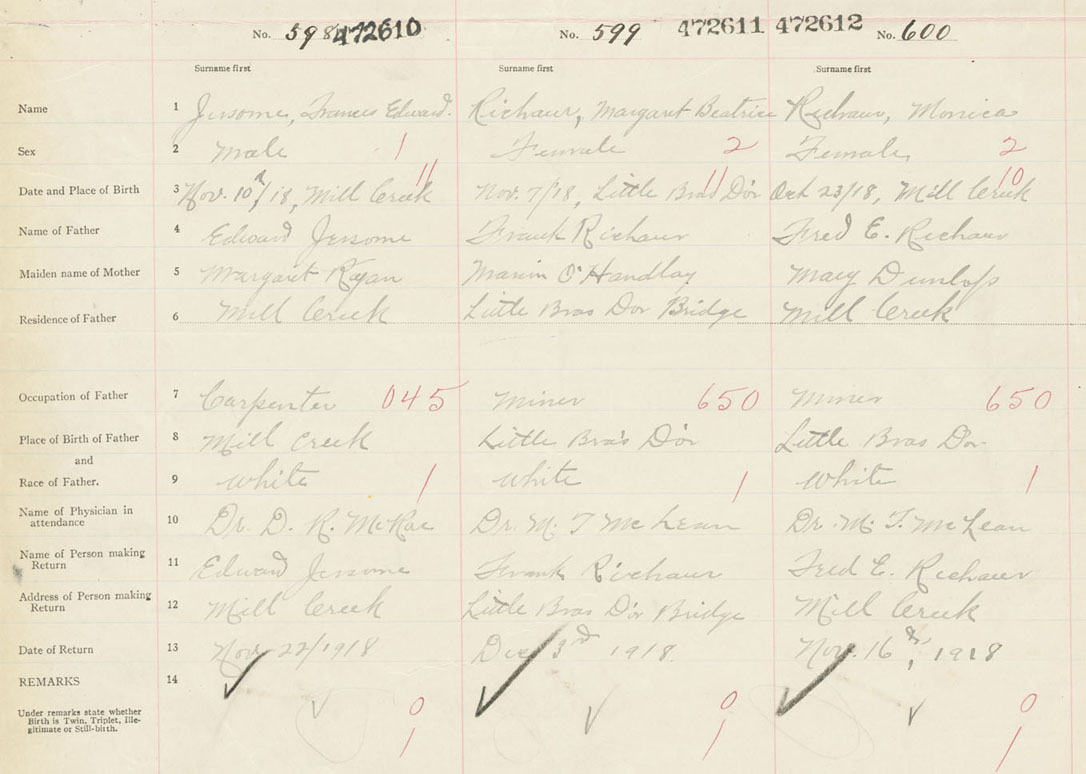 No. 598 472610 No. 599 472611 472612 No. 600
Surname first Surname first Surname first
Name 1 Jessome, Francis Edward. Richaur, Margaret Beatrice Richaur, Monica
Sex 2 Male 1 Female 2 Female 2
11 11 10
Date and Place of Birth 3 Nov. 10th/18, Mill Creek Nov. 7/18, Little Bras D'or Oct 23/18, Mill Creek
Name of Father 4 Edward Jessome Frank Richaur Fred E. Richaur
Maiden name of Mother 5 Margaret Ryan O'Handlay Mary Dunlop
Residence of Father 6 Mill Creek Little Bras Dor Bridge Mill Creek
Occupation of Father 7 Carpenter 045 Miner 650 Miner 650
Place of Birth of Father 8 Mill Creek Little Bras D'or Little Bras Dor
and
Race of Father. 9 White 1 White 1 White 1
Name of Physician in
attendance 10 Dr. D. R. McRae Dr. M. T McLean Dr. M. T. McLean
Name of Person making
Return 11 Edward Jessome Frank Richaur Fred E. Richaur
Address of Person making
Return 12 Mill Creek Little Bras D'or Bridge Mill Creek
Date of Return 13 Nov. 22/1918 Dec 3rd 1918. Nov. 16th, 1918
REMARKS 14
Under remarks state whether
Birth is Twin, Triplet, Ille-
gitimate or Still-birth.
0 0 0
1 1 1